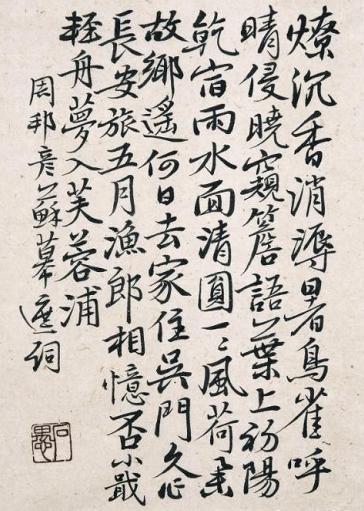 燎沉香消溽暑鳥雀呼
晴侵曉窺簷語葉上初陽
乾宿雨水面清圓一一風荷舉
故鄉遙何日去家住吳門久作
長安旅五月漁郎相憶否小檝
輕舟夢入芙蓉浦
周邦彥蘇幕遮詞